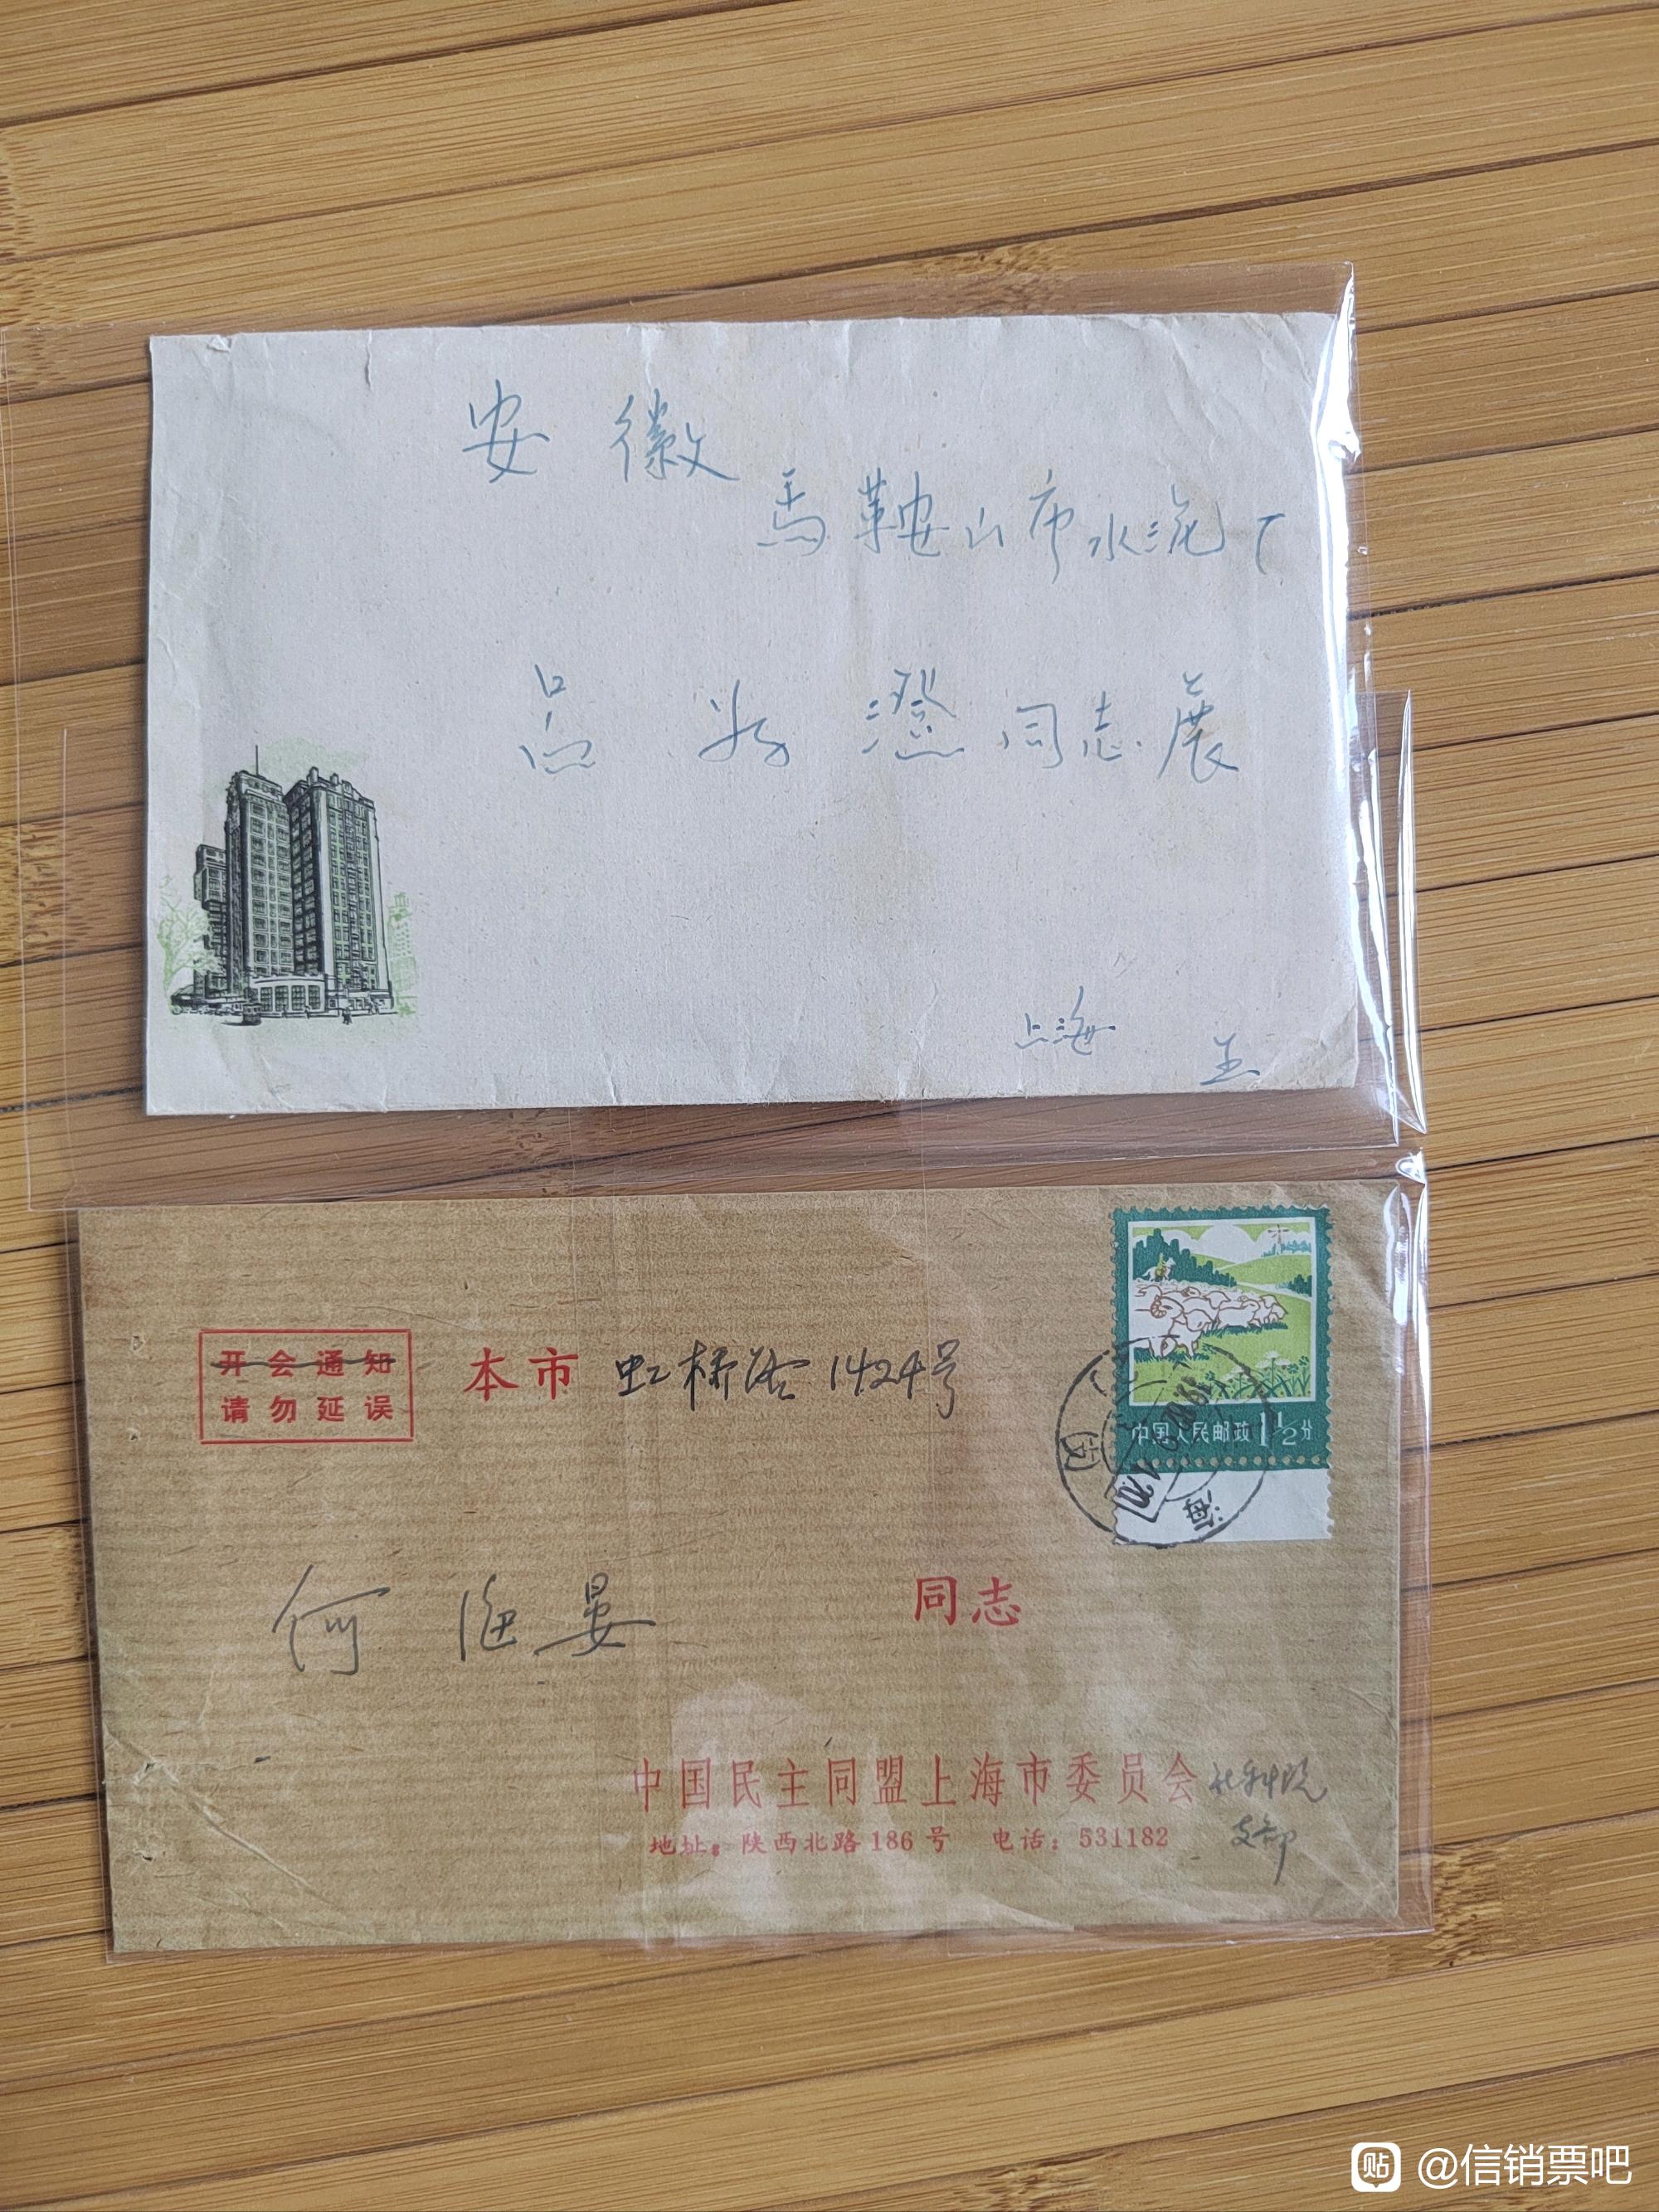 安徽
马鞍山市水泥厂
吕 澄同志展
上海
王
开会通知
请勿延误
本市 虹桥路1424号
中国人民邮政 1 1/2分
海
何 晏 同志
中国民主同盟上海市委员会 社科院
支部
地址：陕西北路186号 电话：531182
贴 @信销票吧